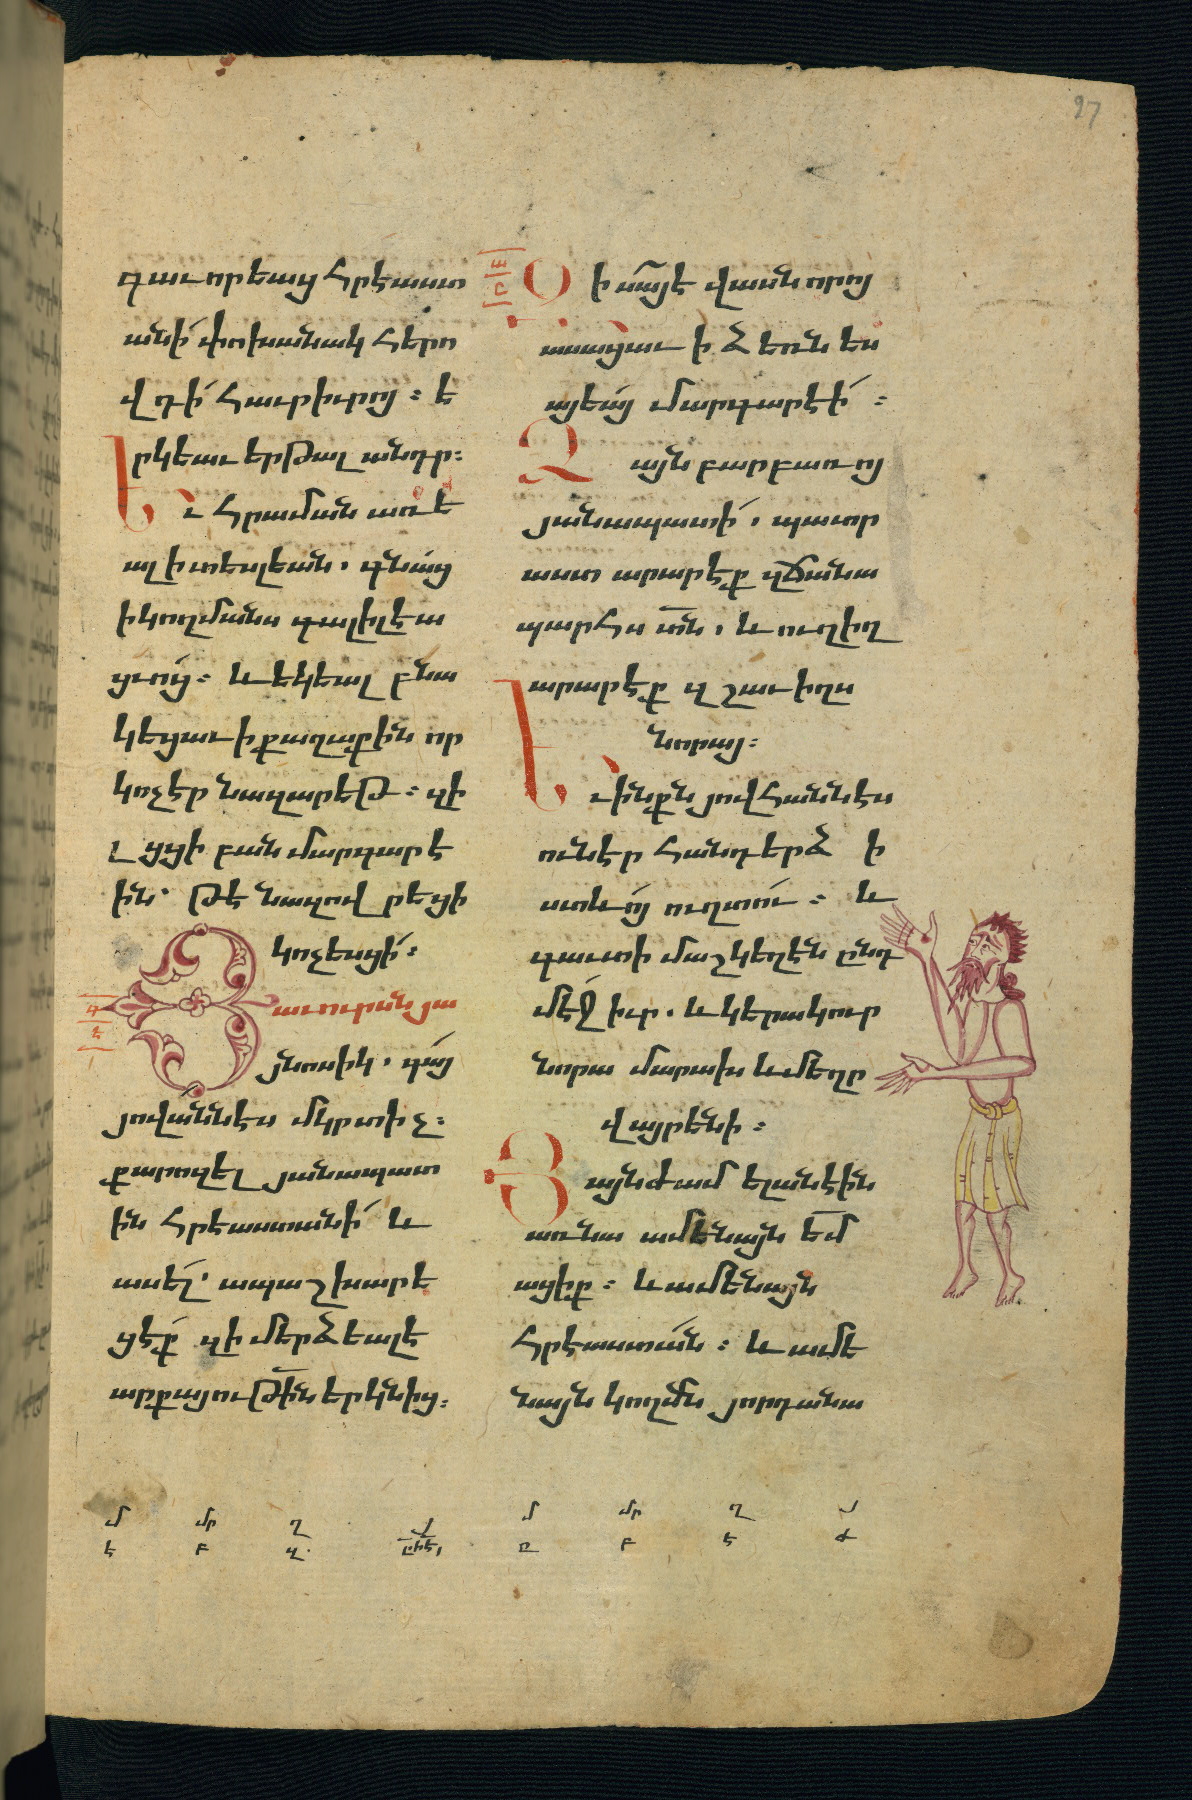 27
գաւորեաց Հրէաստ
անի՛ փոխանակ Հերո
վդի՛ Հաւրիւրոյ ։ ե
րկեաւ երթալ անդր։
Եւ Հրաման առե
ալ ի տեսլեան . գնա՛ց
ի կողմանս գալիլէա
ցւո՛ց ։ և եկեալ բնա
կեցաւ ի քաղաքին որ
կոչէր նազարեթ ։ զի
լցցի բան մարգարէ
ին՝ թէ նազովրեցի
կոչեսցի՛։
Յաւուրսն յա
յնոսիկ . գա՛յ
յովա՛ննէս մկրտիչ։
քարոզել յանապատ
ին Հրէաստանի՛ և
ասել՛ ապաշխարե
ցէ՛ք զի մերձեալ է
արքայութի՜ն երկնից։
Զի սա՜յ է վասն որոյ
ասացաւ ի ձեռն ես
այեա՛յ մարգարէի՛ ։
Ձայն բարբառոյ
յանապատի՛ . պատր
աստ արարէք զճանա
պարՀս տն . և ուղիղ
արարէք զշաւիղս
նորայ։
Եւ ինքն յովՀաննէս
ունէր Հանդերձ ի
ստևո՛յ ուղտու՛ ։ և
գաւտի մաշկեղէն ընդ
մէջ իւր . և կերակուր
նորա մարախ և մեղր
վայրենի ։
Յայնժամ ելանէին
առնա ամենայն եմ
ացիք ։ և ամենայն
Հրէաստա՛ն ։ և ամե
նայն կողմն յորդանա
մ մր ղ յ
է բ զ
մ մր ղ յ
ը բ է ժ